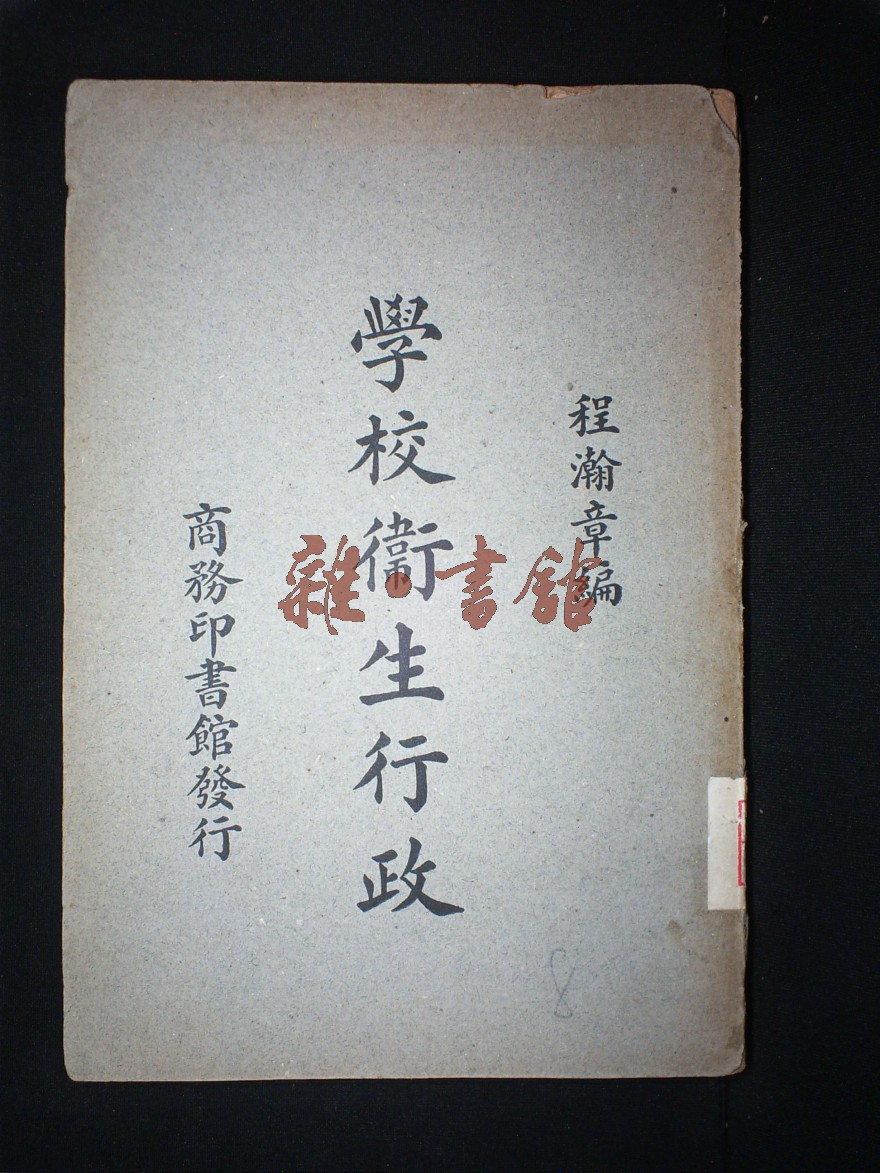 程瀚章編
學校衞生行政
商務印書館發行
雜·書館
8